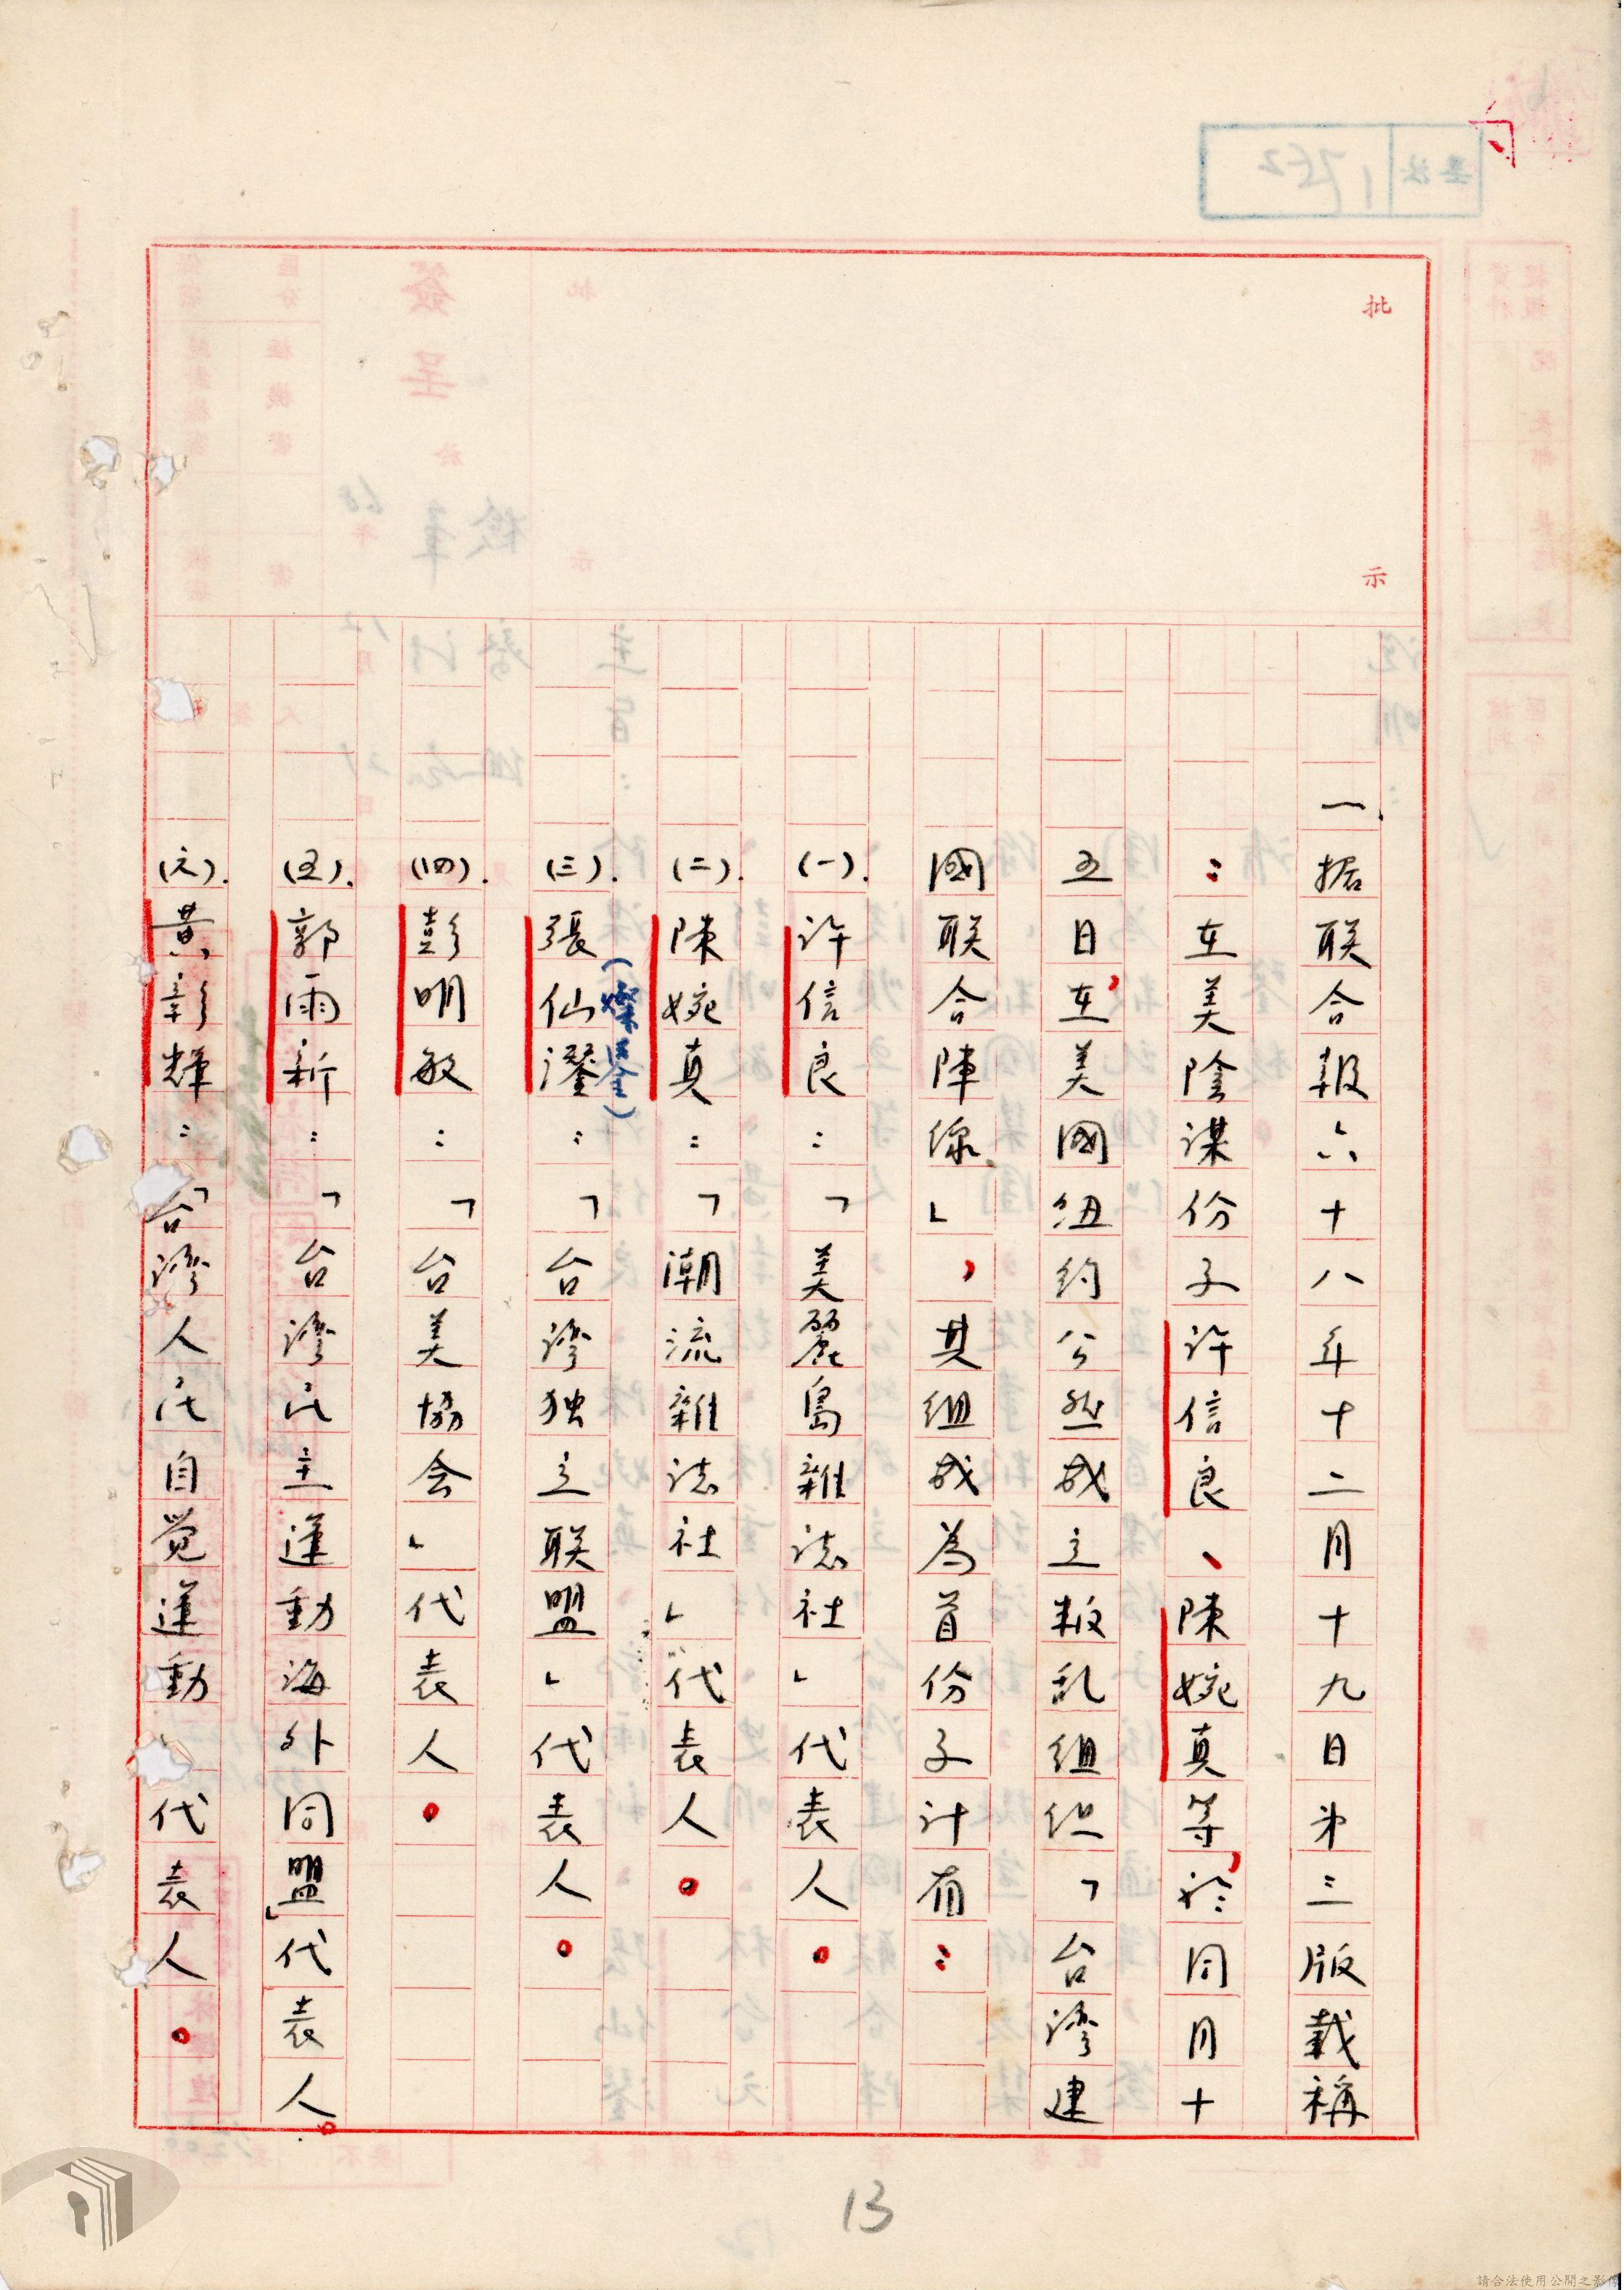 批示
一、据联合報六十八年十二月十九日第三版載稱
：在美陰謀份子許信良、陳婉真等，於同月十
五日，在美國紐約公然成立叛乱組织「台湾建
國联合陣線」，其組成為首份子計有：
(一).許信良：「美麗島雜誌社」代表人。
(二).陳婉真：「潮流雜誌社」代表人。
(燦鍙)
(三).張仙濢：「台湾独立联盟」代表人。
(四).彭明敏：「台美協会」代表人。
(五).郭雨新：「台湾民主運動海外同盟」代表人。
(六).黃彰輝：「台湾人民自觉運動 代表人。
13
請合法使用公開之影像